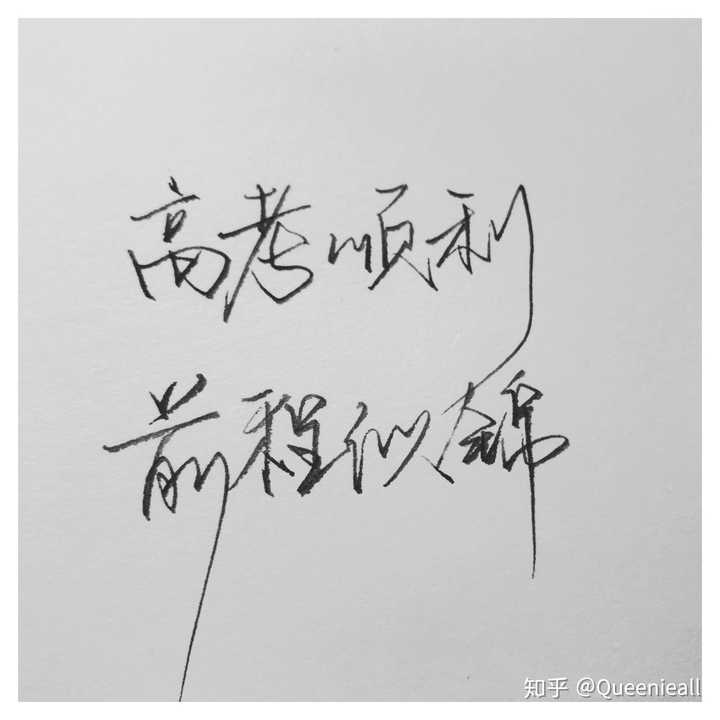 高考顺利
前程似锦
知乎 @Queenieall